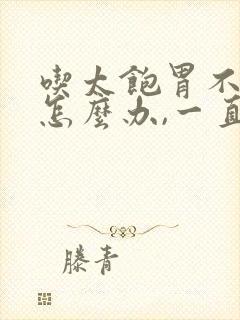 喫太飽胃不
怎麼办,一直
滕青